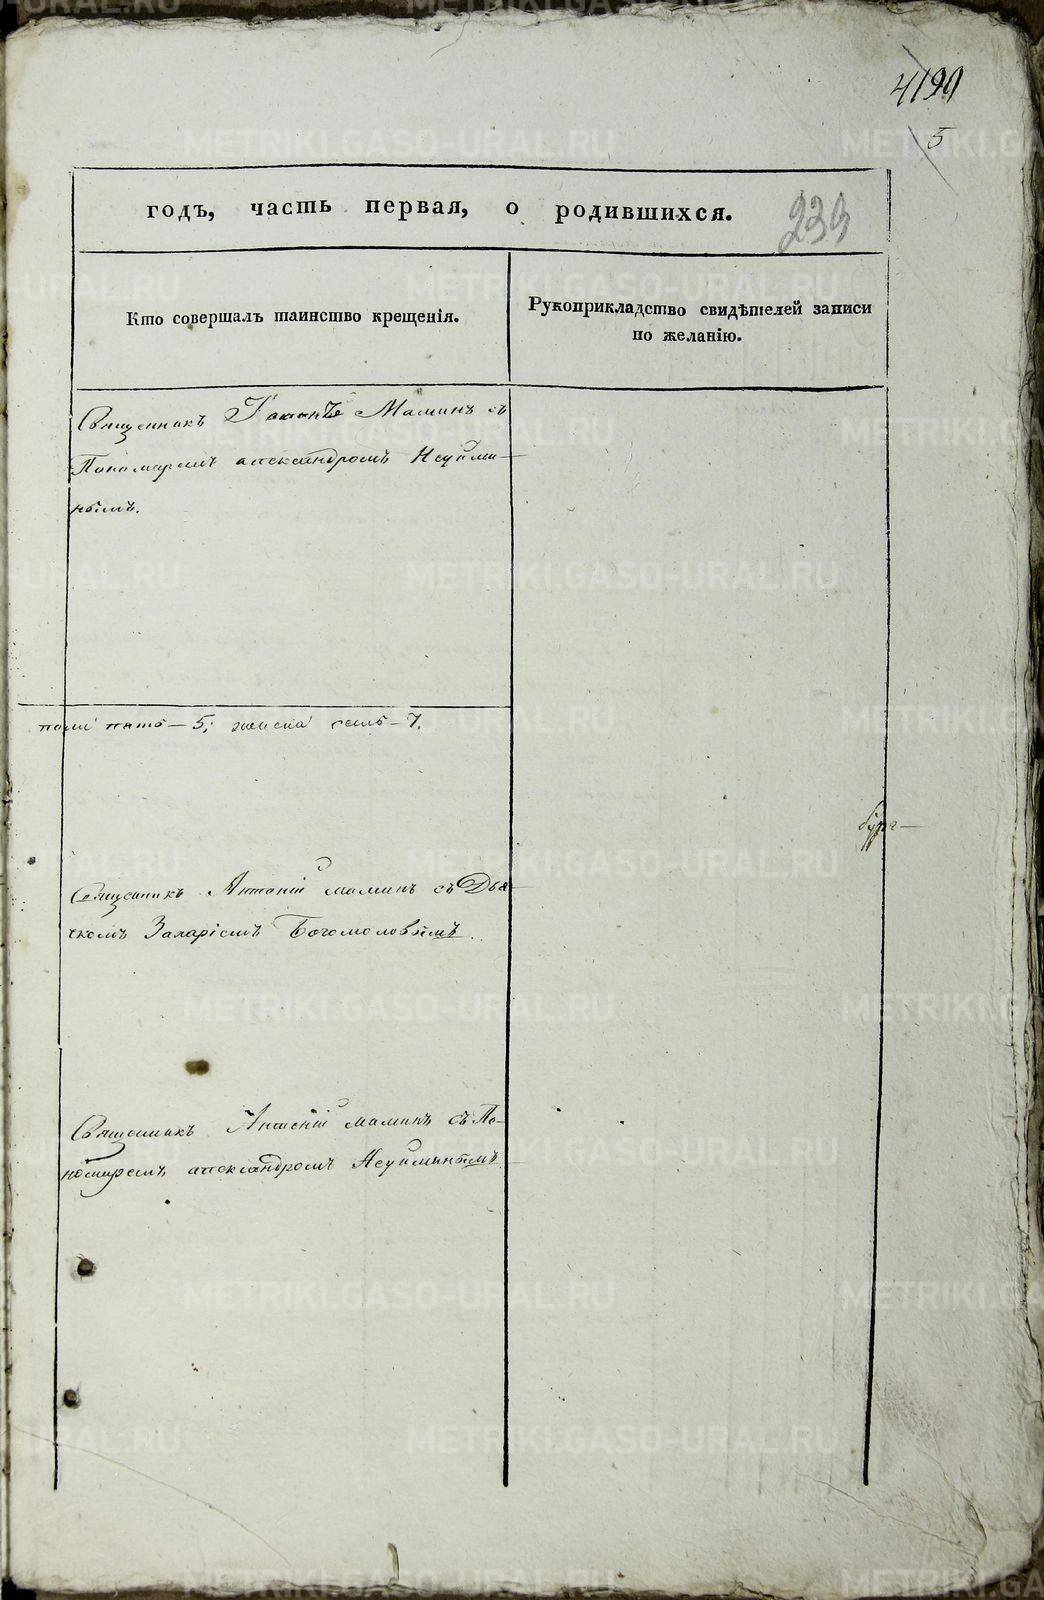 4199
5
годъ, часть первая, о родившихся.
239
Кто совершалъ таинство крещенія.
Рукоприкладство свидѣтелей записи
по желанію.
Священникъ Іоаннъ Маминъ съ
Пономаремъ александромъ Неуйми-
нымъ.
пять — 5; женска семь — 7.
Священникъ Антоній маминъ съ Дья
чкомъ Захаріемъ Богомоловымъ.
Священникъ Антоній маминъ съ По-
номаремъ александромъ Неуйминымъ.
METRIKI.GASO-URAL.RU